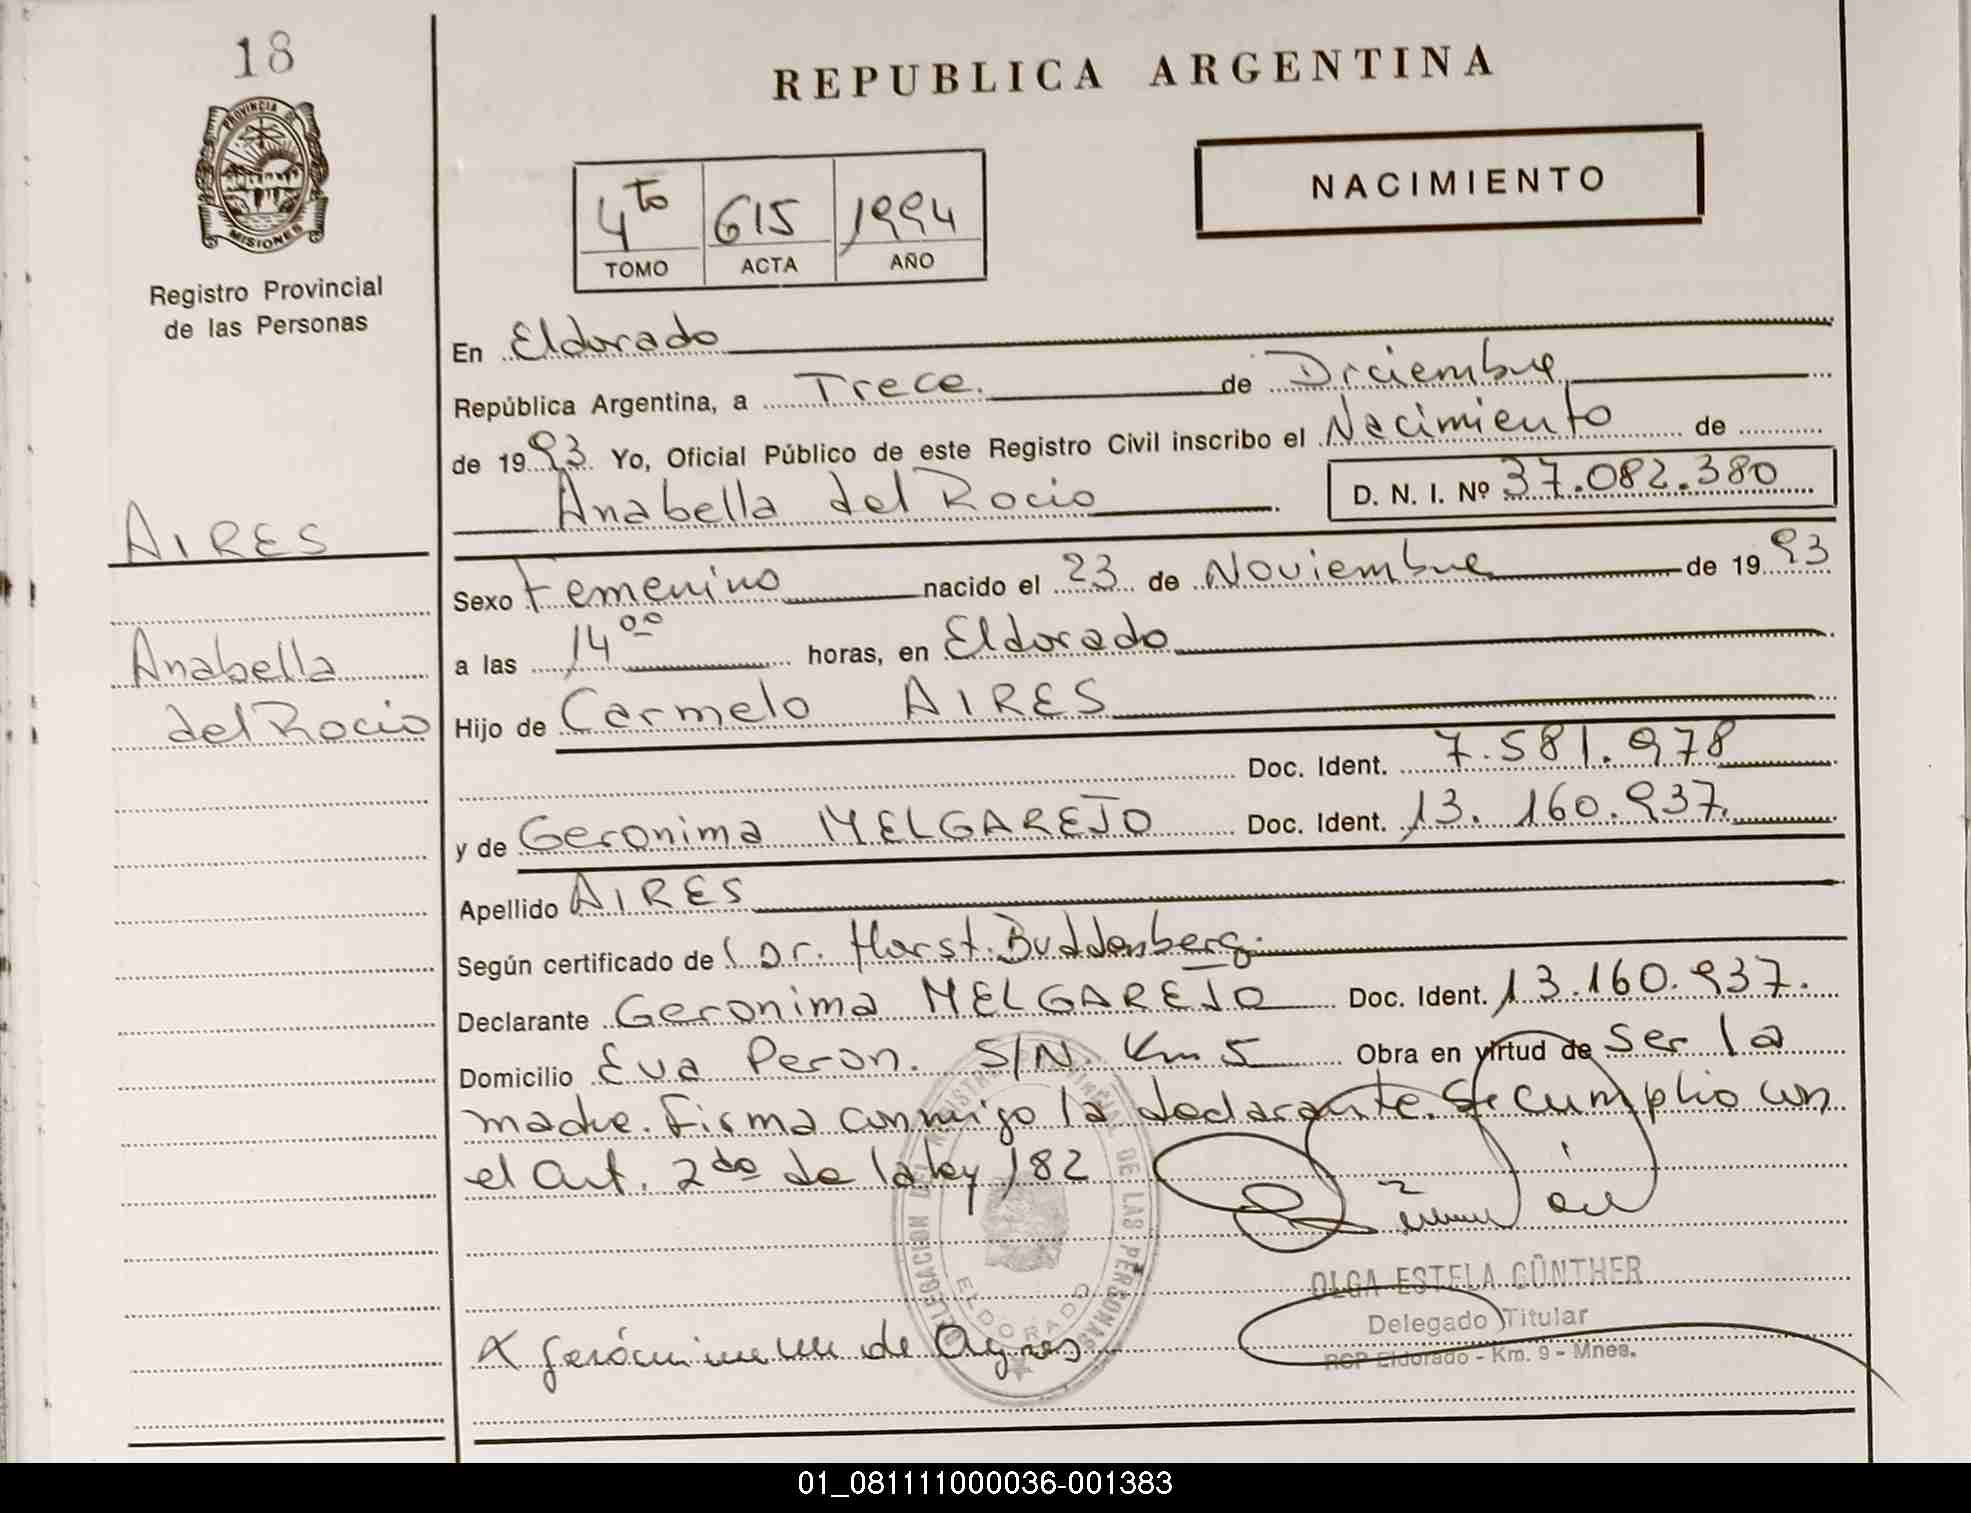 18
PROVINCIA DE
MISIONES
Registro Provincial
de las Personas
AIRES
Anabella
del Rocio
REPUBLICA ARGENTINA
NACIMIENTO
4to 615 1994
TOMO ACTA AÑO
En Eldorado
República Argentina, a Trece. de Diciembre
de 1993. Yo, Oficial Público de este Registro Civil inscribo el Nacimiento de
Anabella del Rocio D. N. I. Nº 37.082.380
Sexo Femenino nacido el 23 de Noviembre de 1993
a las 14 oo horas, en Eldorado
Hijo de Carmelo AIRES
Doc. Ident. 7.581.978
y de Geronima MELGAREJO Doc. Ident. 13.160.937.
Apellido AIRES
Según certificado de Dr. Horst. Buddenberg.
Declarante Geronima MELGAREJO Doc. Ident. 13.160.937.
Domicilio Eva Peron. S/N. Km 5 Obra en virtud de Ser la
madre. Firma conmigo la declarante. Se cumplio con
el Art. 2do de la ley 182
DELEGACION DEL REGISTRO PROVINCIAL DE LAS PERSONAS
ELDORADO
OLGA ESTELA GÜNTHER
Delegado Titular
RCP Eldorado - Km. 9 - Mnes.
X de Ayres
01_081111000036-001383